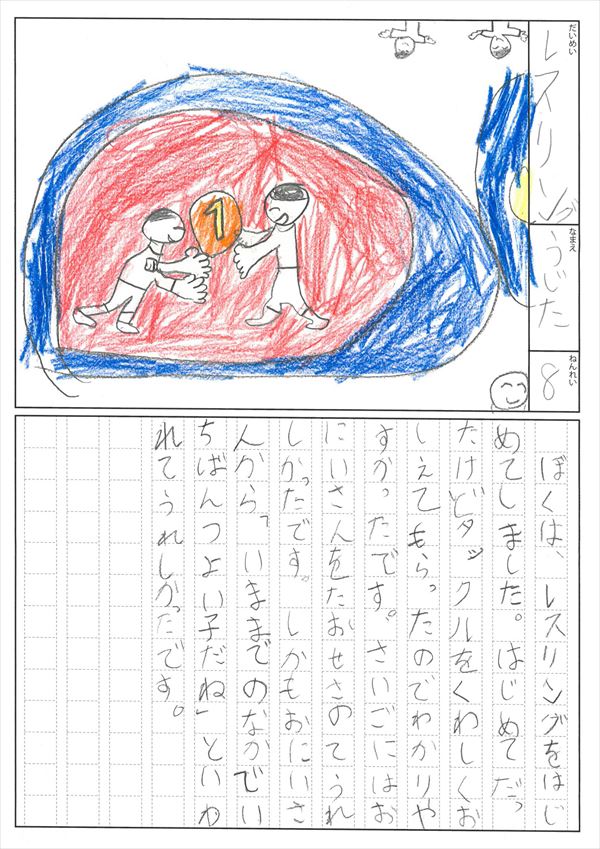 だいめい
レスリング
なまえ
うじた
ねんれい
8
1
ぼくは、レスリングをはじ
めてしました。はじめてだっ
たけどタックルをくわしくお
しえてもらったのでわかりや
すかったです。さいごにはお
にいさんをたおせさのてうれ
しかったです。しかもおにいさ
んから「いままでのなかでい
ちばんつよい子だね」といわ
れてうれしかったです。